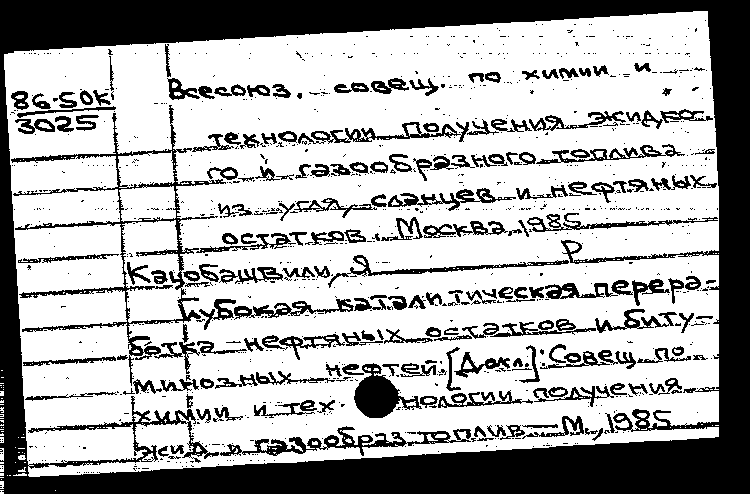 86-50к
3025
Всесоюз. совещ. по химии и
технологии получения жидко-
го и газообразного топлива
из угля, сланцев и нефтяных
остатков. Москва, 1985
Кацобашвили, Я Р
Глубокая каталитическая перера-
ботка нефтяных остатков и биту-
минозных нефтей. [Докл.]: Совещ. по
химии и тех нологии получения
жид и газообраз топлив — М., 1985